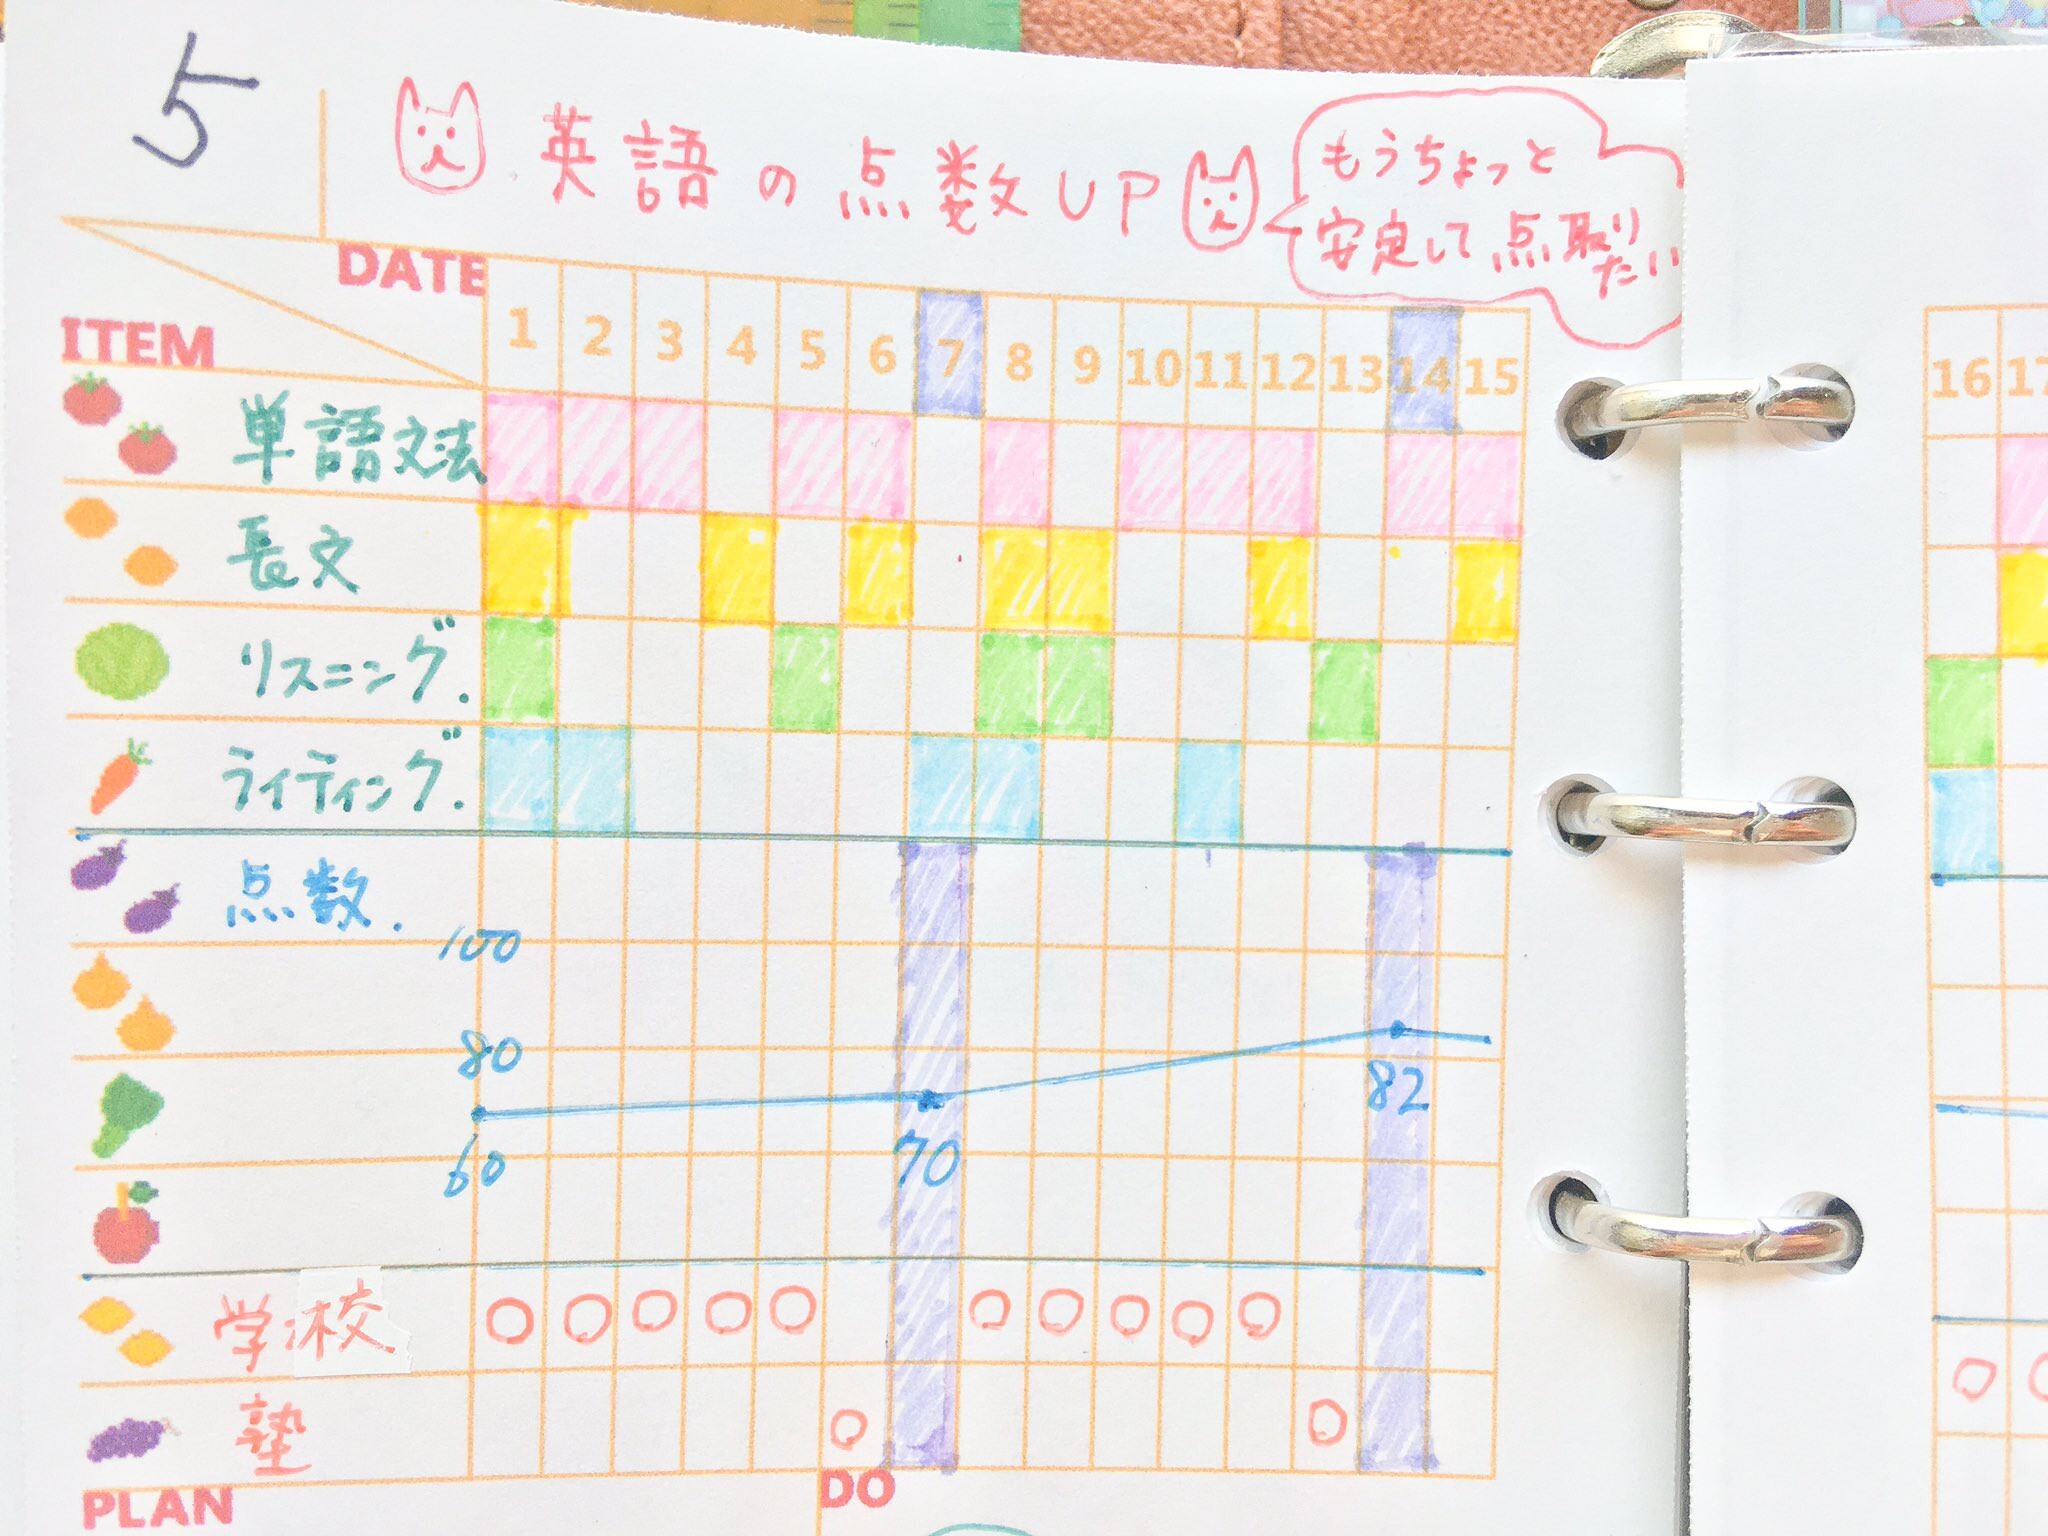 5
英語の点数UP
もうちょっと
安定して点取り
たい
DATE
ITEM
1 2 3 4 5 6 7 8 9 10 11 12 13 14 15
16 17
単語文法
長文
リスニング.
ライティング.
点数.
100
80
82
70
60
学校
塾
PLAN
DO